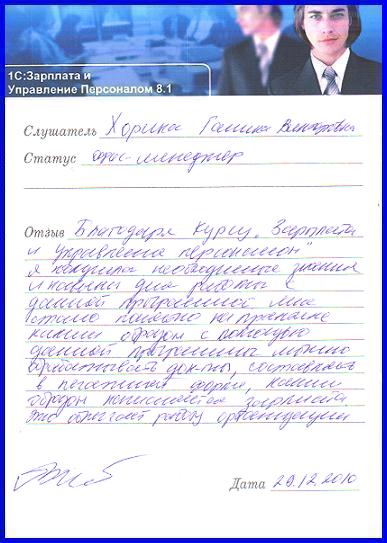 1С:Зарплата и
Управление Персоналом 8.1
Слушатель Хорина Галина Викторовна
Статус офис-менеджер
Отзыв Благодаря курсу „Зарплата
и управление персоналом"
я получила необходимые знания
и навыки для работы с
данной программой. Мне
стало понятно на практике
каким образом с помощью
данной программы можно
обрабатывать док-ты, составлять
в печатной форме, каким
образом начисляется зарплата.
Это облегчает работу организации
Дата 29.12.2010